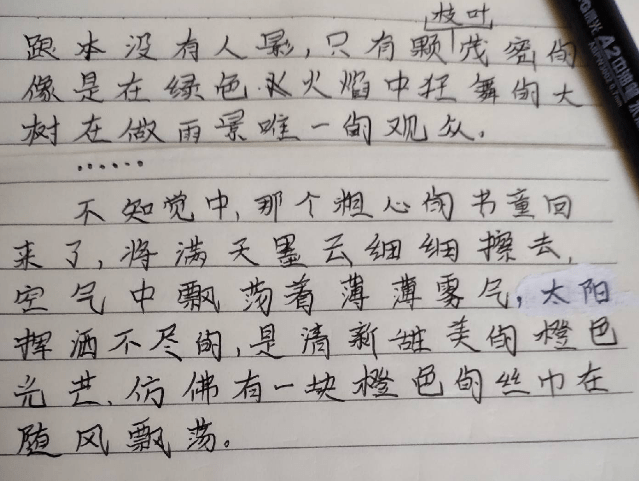 枝叶
跟本没有人影，只有颗茂密的
像是在绿色火焰中狂舞的大
树在做雨景唯一的观众。
……
不知觉中，那个粗心的书童回
来了，将满天墨云细细擦去，
空气中飘荡着薄薄雾气，太阳
挥洒不尽的，是清新甜美的橙色
光芒，仿佛有一块橙色的丝巾在
随风飘荡。